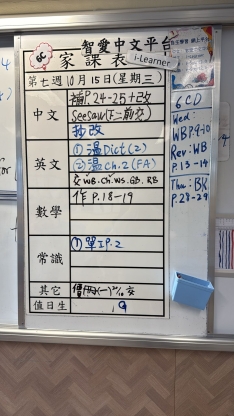 智愛中文平台
家課表
i-Learner
第七週 10月15日(星期三)
中文
補P.24-25+改
SeeSaw(下二前交)
英文
① 溫Dict(2)
② 溫Ch.2(FA)
交WB.Ch.WS.GB.RB
數學
作 P.18-19
常識
① 單IP.2
其它
值日生
6CD
Wed:
WB P.9-10
Rev: WB
P.13-14
Thu: BK
P.28-29